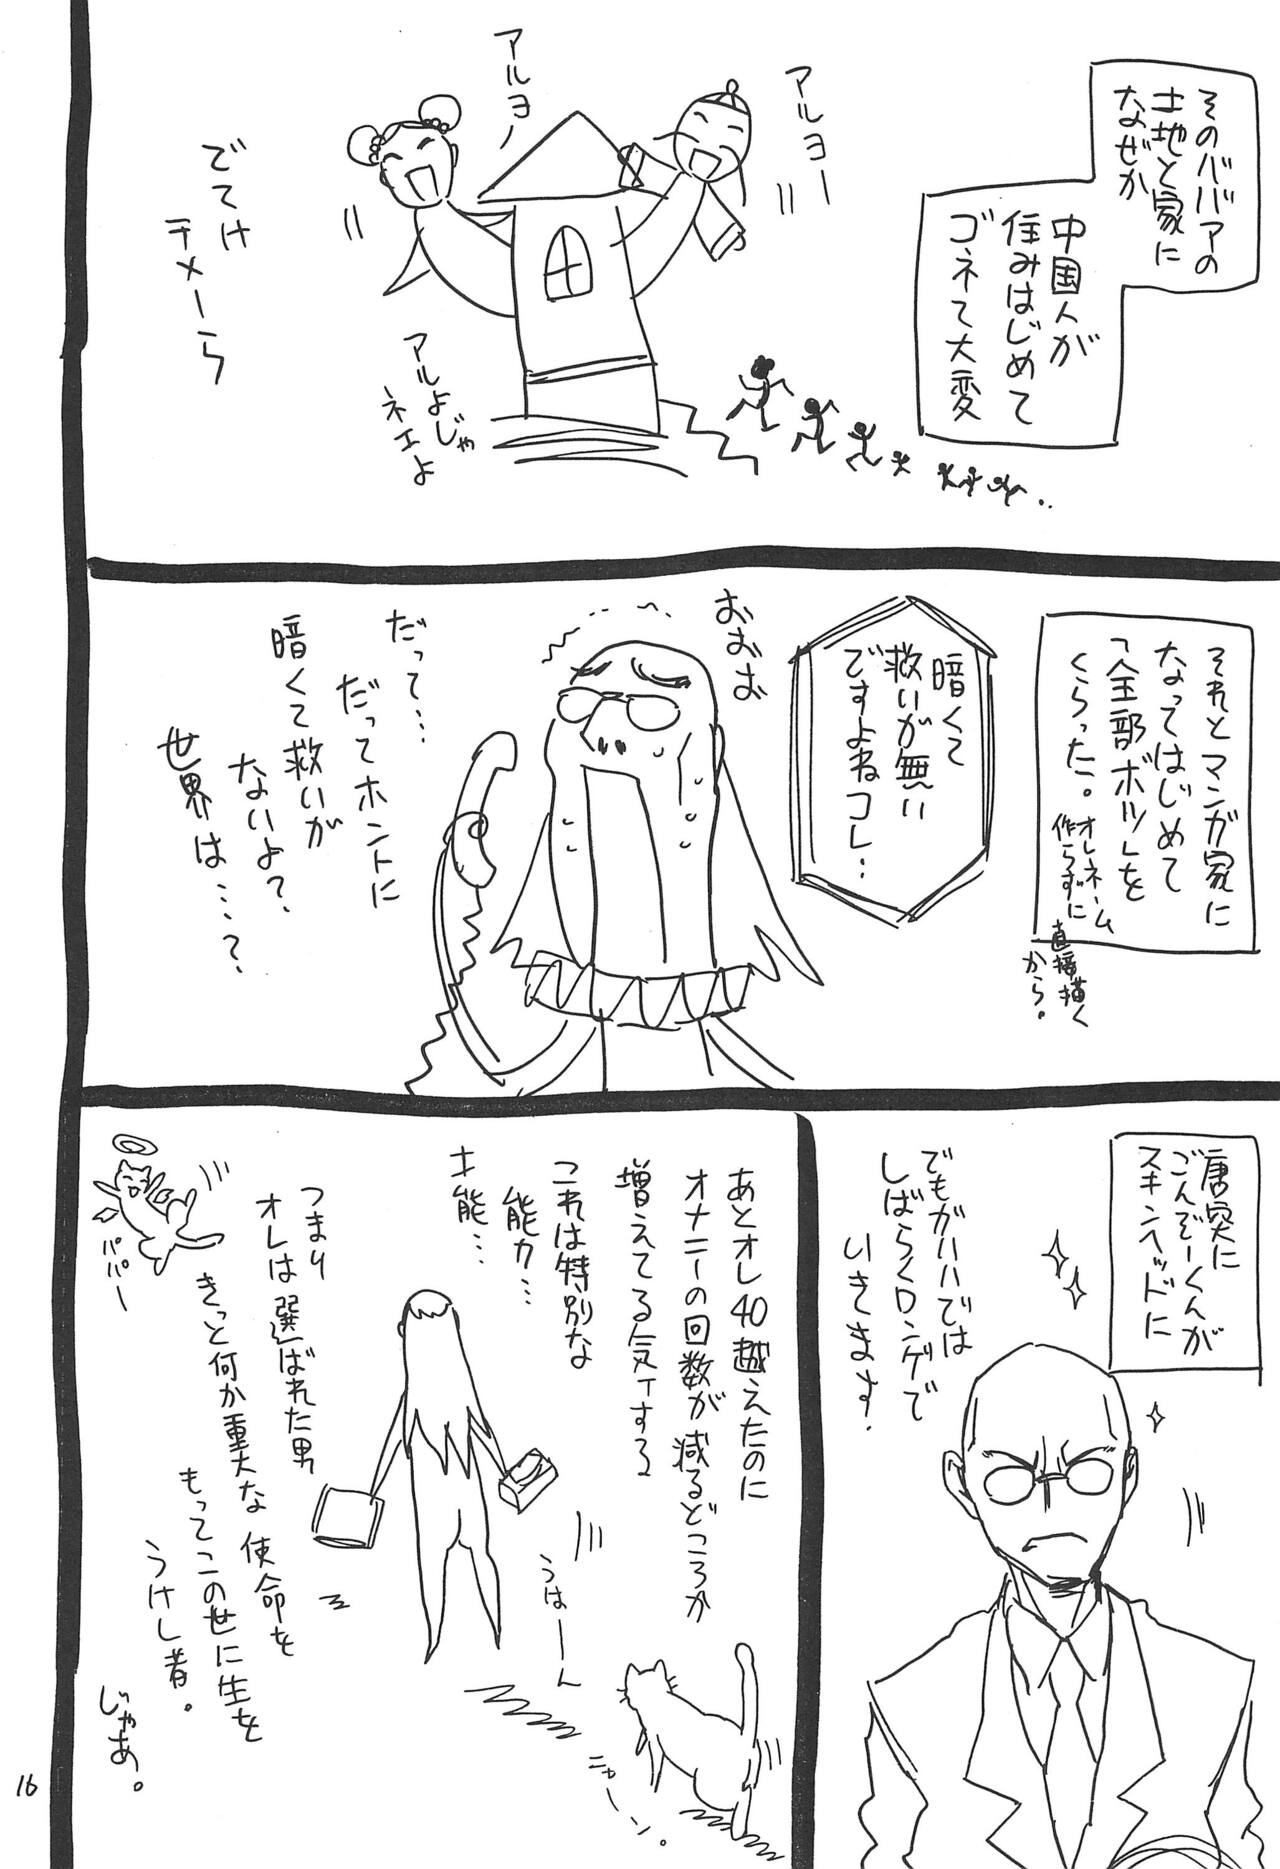 そのババアの
土地と家に
なぜか
中国人が
住みはじめて
ゴネて大変
アルヨー
アルヨー
でてけ
テメーら
アルよじゃ
ネエよ
それとマンガ家に
なってはじめて
「全部ボツ」を
くらった。
オレネーム
作らずに
直接描く
から。
暗くて
救いが無い
ですよねコレ…
おおお
だって…
だってホントに
暗くて救いが
ないよ?
世界は…?
唐突に
ごんぞーくんが
スキンヘッドに
でもがいいでは
しばらくロンゲで
いきます。
あとオレ40越えたのに
オナニーの回数が減るどころか
増えてる気ィする
これは特別な
能力…
才能…
つまり
オレは選ばれた男
きっと何か重大な使命を
もってこの世に生を
うけし者。
じゃあ。
パパー
うはーん
ニャーン。
16